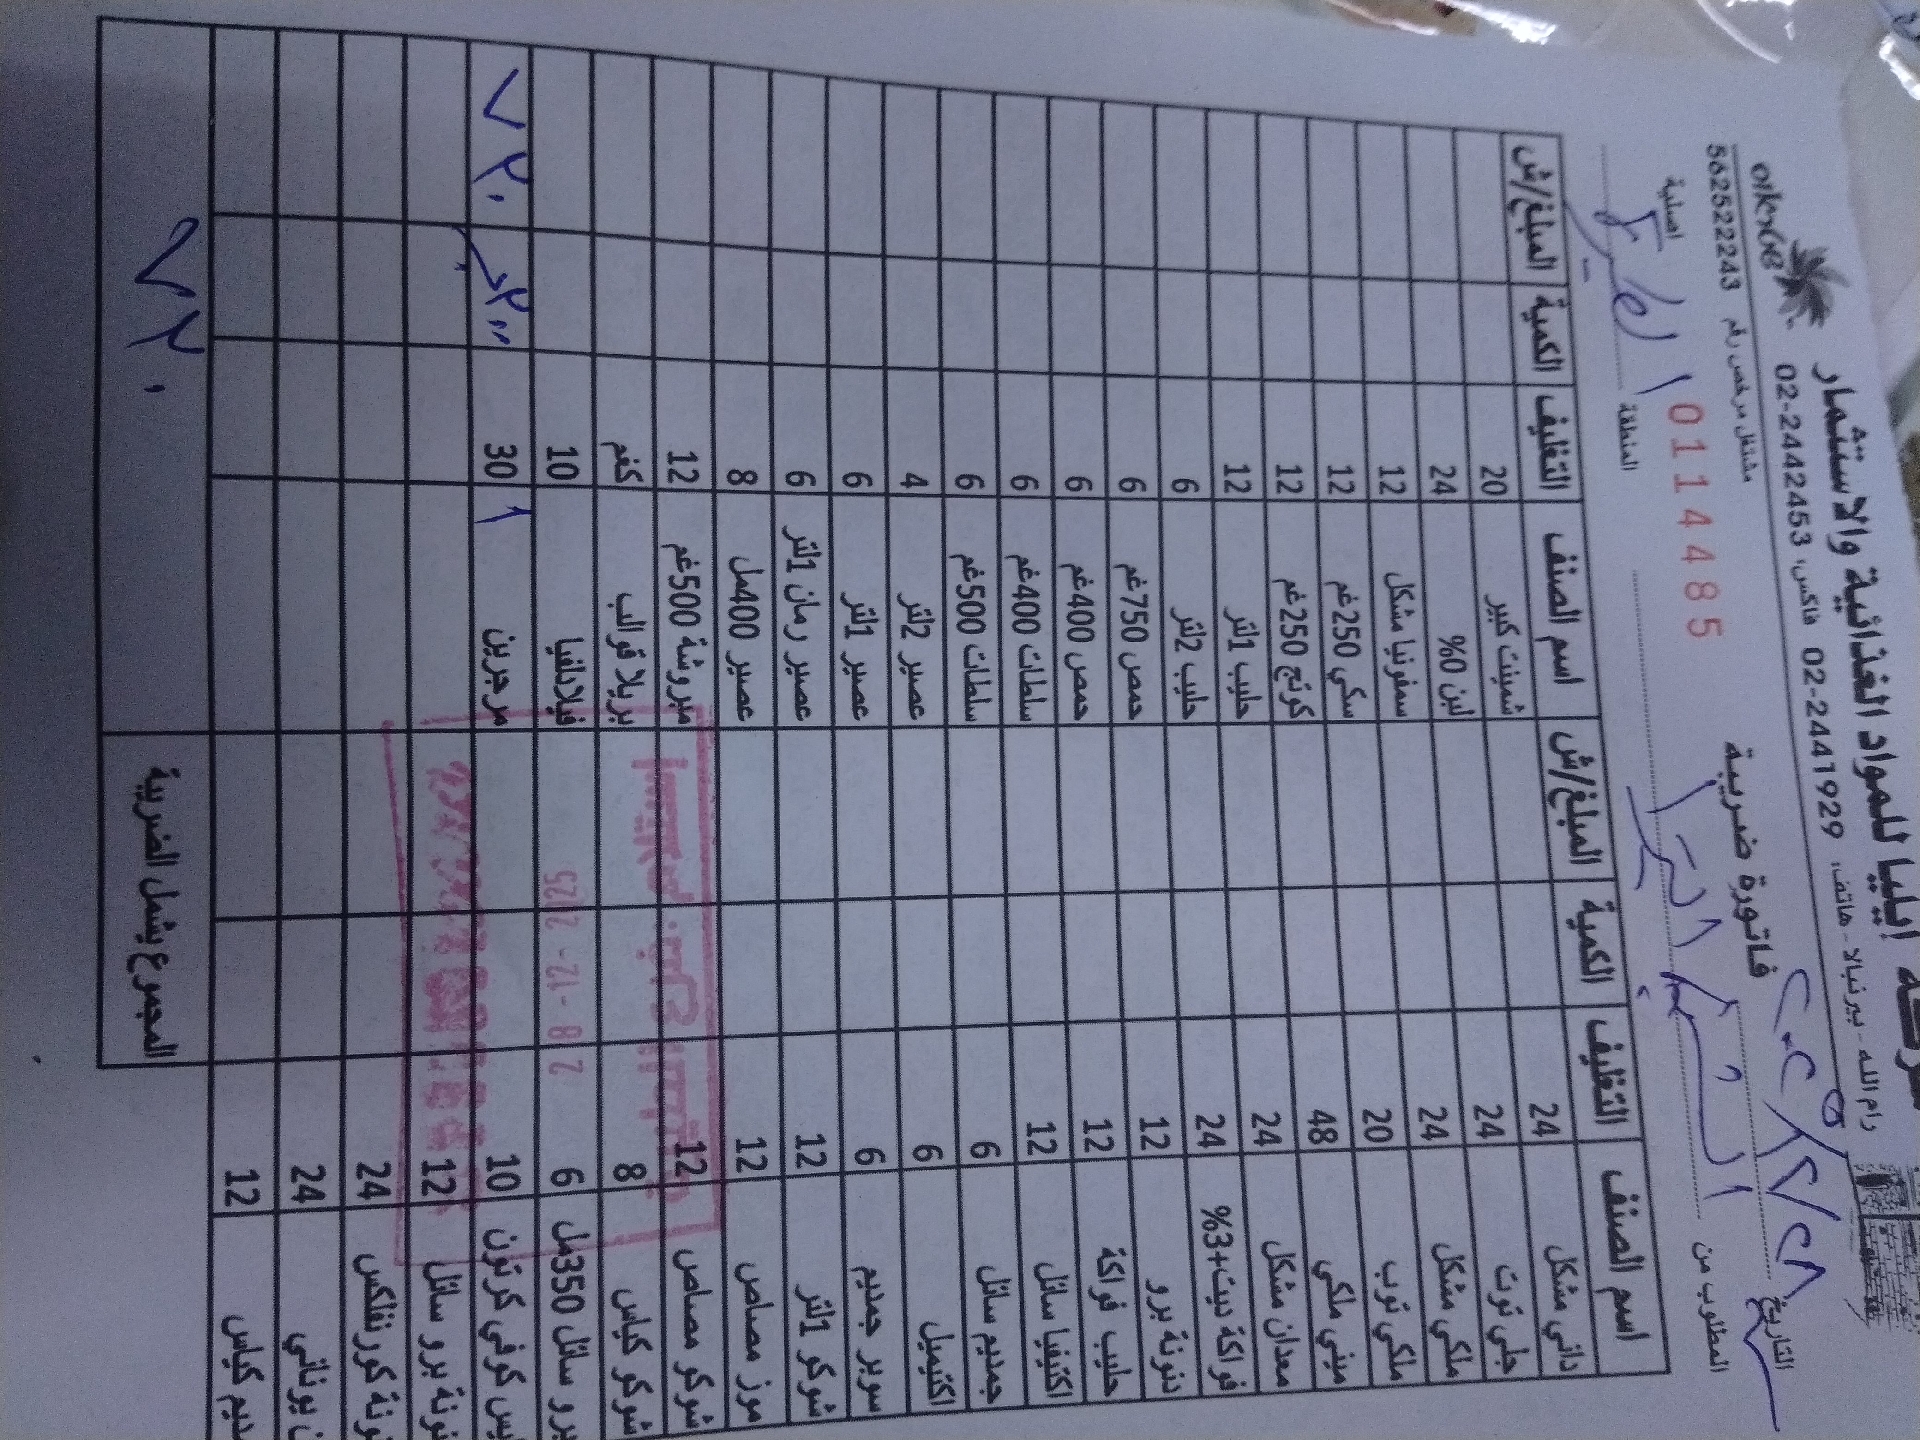 ايليا للمواد الغذائية والاستثمار
رام الله - بيرنبالا - هاتف: 02-2441929 فاكس: 02-2442453
مشتغل مرخص رقم 562522243
فاتورة ضريبية
0114485
أصلية
التاريخ ٢٠٢٥/١٢/٢٨
المطلوب من
المنطقة
اسم الصنف التغليف الكمية المبلغ/ش اسم الصنف التغليف الكمية المبلغ/ش
داني مشكل 24 شمينت كبير 20
جلي توت 24 لبن 0% 24
ملكي مشكل 24 سمفونيا مشكل 12
ملكي توب 20 سكي 250غم 12
ميني ملكي 48 كوتج 250غم 12
معدان مشكل 24 حليب 1لتر 12
فواكة دييت+3% 24 حليب 2لتر 6
دنونة برو 12 حمص 750غم 6
حليب فواكة 12 حمص 400غم 6
اكتيفيا سائل 12 سلطات 400غم 6
جمديم سائل 6 سلطات 500غم 6
اكتيميل 6 عصير 2لتر 4
سوبر جمديم 6 عصير 1لتر 6
شوكو 1لتر 12 عصير رمان 1لتر 6
موز مصاص 12 عصير 400مل 8
شوكو مصاص 12 مبروشة 500غم 12
شوكو كياس 8 بريلا قوالب كغم
برو سائل 350مل 6 فيلادلفيا 10
كوفي كرتون 10 مرجرين ١ 30 ٧٢٠
برو سائل 12
كورنفلكس 24
يوناني 24
كياس 12
المجموع يشمل الضريبة ٧٢٠